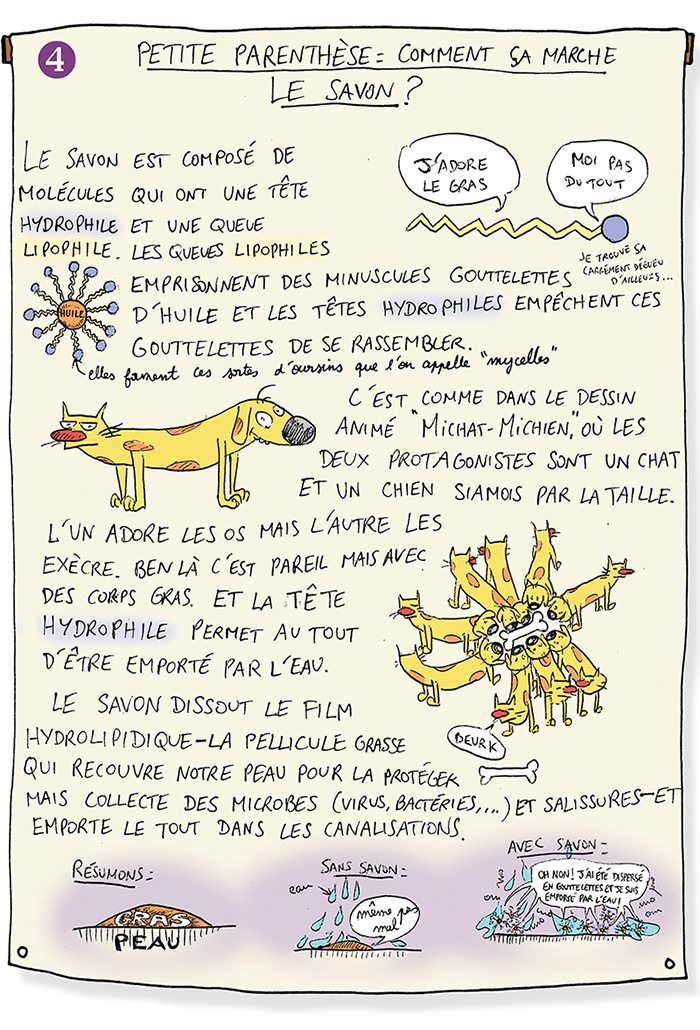 4
PETITE PARENTHÈSE = COMMENT ÇA MARCHE
LE SAVON ?
LE SAVON EST COMPOSÉ DE
MOLÉCULES QUI ONT UNE TÊTE
HYDROPHILE ET UNE QUEUE
LIPOPHILE. LES QUEUES LIPOPHILES
J'ADORE
LE GRAS
MOI PAS
DU TOUT
JE TROUVE ÇA
CARRÉMENT DÉGUEU
D'AILLEURS...
EMPRISONNENT DES MINUSCULES GOUTTELETTES
D'HUILE ET LES TÊTES HYDROPHILES EMPÊCHENT CES
GOUTTELETTES DE SE RASSEMBLER.
HUILE
elles forment ces sortes d'oursins que l'on appelle "mycelles"
C'EST COMME DANS LE DESSIN
ANIMÉ "MICHAT-MICHIEN," OÙ LES
DEUX PROTAGONISTES SONT UN CHAT
ET UN CHIEN SIAMOIS PAR LA TAILLE.
L'UN ADORE LES OS MAIS L'AUTRE LES
EXÈCRE. BEN LÀ C'EST PAREIL MAIS AVEC
DES CORPS GRAS. ET LA TÊTE
HYDROPHILE PERMET AU TOUT
D'ÊTRE EMPORTÉ PAR L'EAU.
BEURK
LE SAVON DISSOUT LE FILM
HYDROLIPIDIQUE-LA PELLICULE GRASSE
QUI RECOUVRE NOTRE PEAU POUR LA PROTÉGER
MAIS COLLECTE DES MICROBES (VIRUS, BACTÉRIES,...) ET SALISSURES-ET
EMPORTE LE TOUT DANS LES CANALISATIONS.
RÉSUMONS =
GRAS
PEAU
SANS SAVON =
eau
même pas
mal !
AVEC SAVON =
OH NON ! J'AI ÉTÉ DISPERSÉ
EN GOUTTELETTES ET JE SUIS
EMPORTÉ PAR L'EAU !